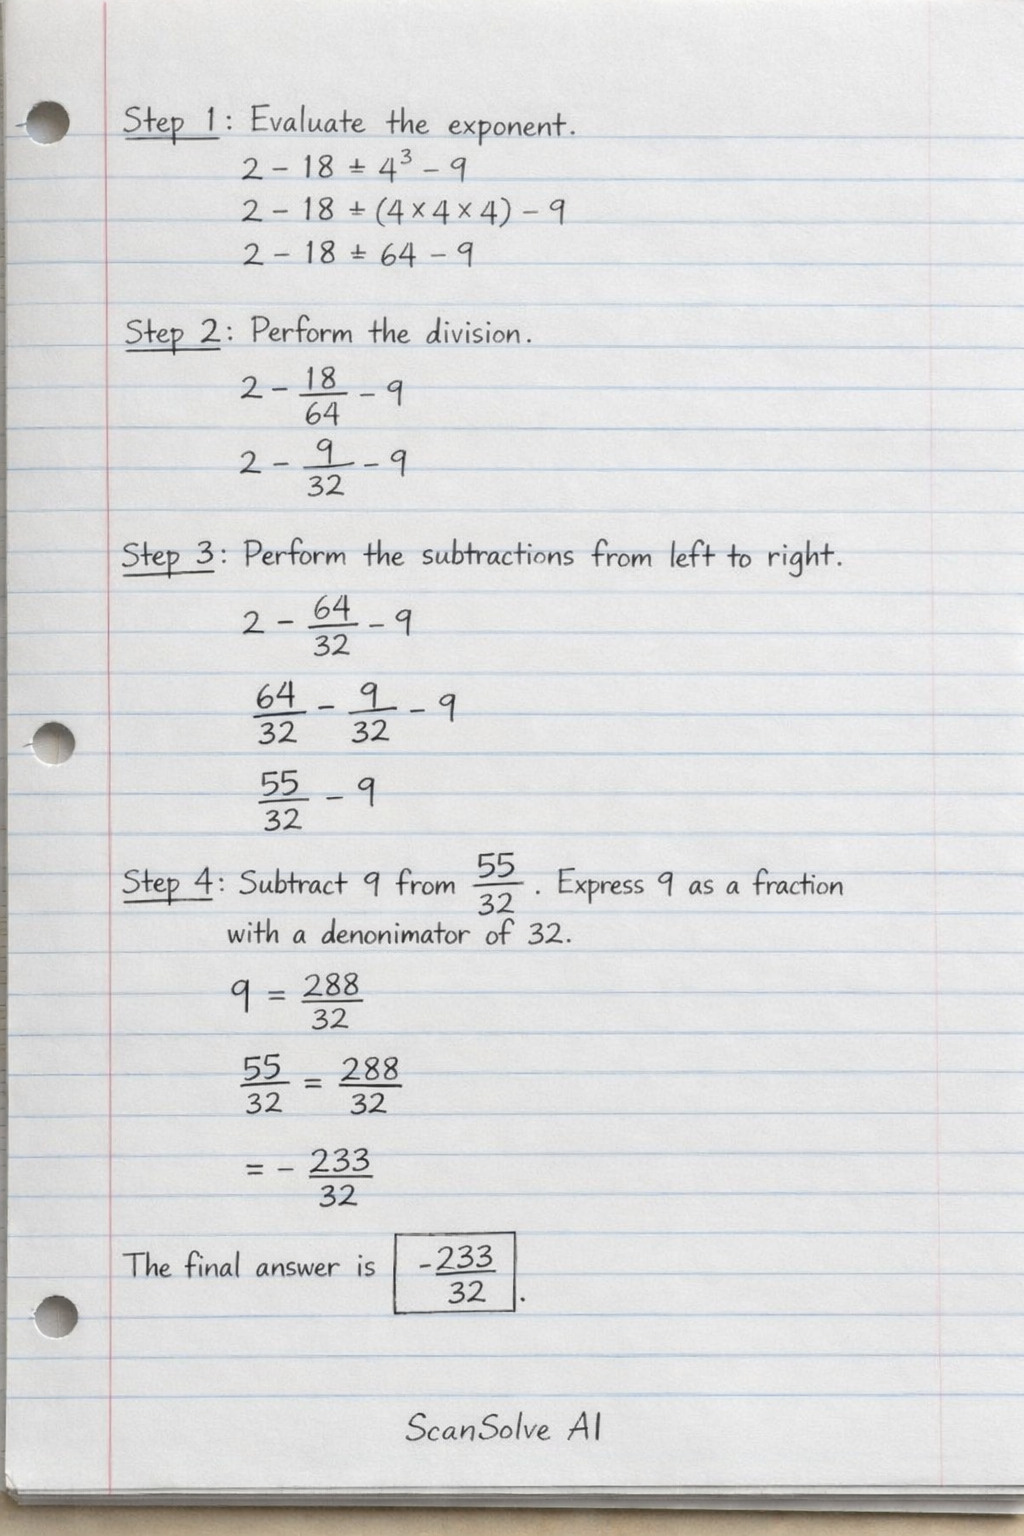 Step 1: Evaluate the exponent.
2 - 18 ± 4³ - 9
2 - 18 ± (4 × 4 × 4) - 9
2 - 18 ± 64 - 9
Step 2: Perform the division.
2 - 18/64 - 9
2 - 9/32 - 9
Step 3: Perform the subtractions from left to right.
2 - 64/32 - 9
64/32 - 9/32 - 9
55/32 - 9
Step 4: Subtract 9 from 55/32. Express 9 as a fraction
with a denonimator of 32.
9 = 288/32
55/32 = 288/32
= - 233/32
The final answer is -233/32.
ScanSolve AI